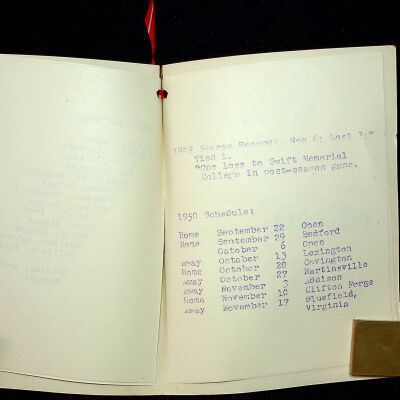 1949 Season Record: Won 6; Lost 3;*
Tied 1.
*One Loss to Swift Memorial
College in post-season game.
1950 Schedule:
Home September 22 Open
Home September 29 Bedford
October 6 Open
Away October 13 Lexington
Home October 20 Covington
Away October 27 Martinsville
Away November 3 Addison
Home November 10 Clifton Forge
Away November 17 Bluefield,
Virginia